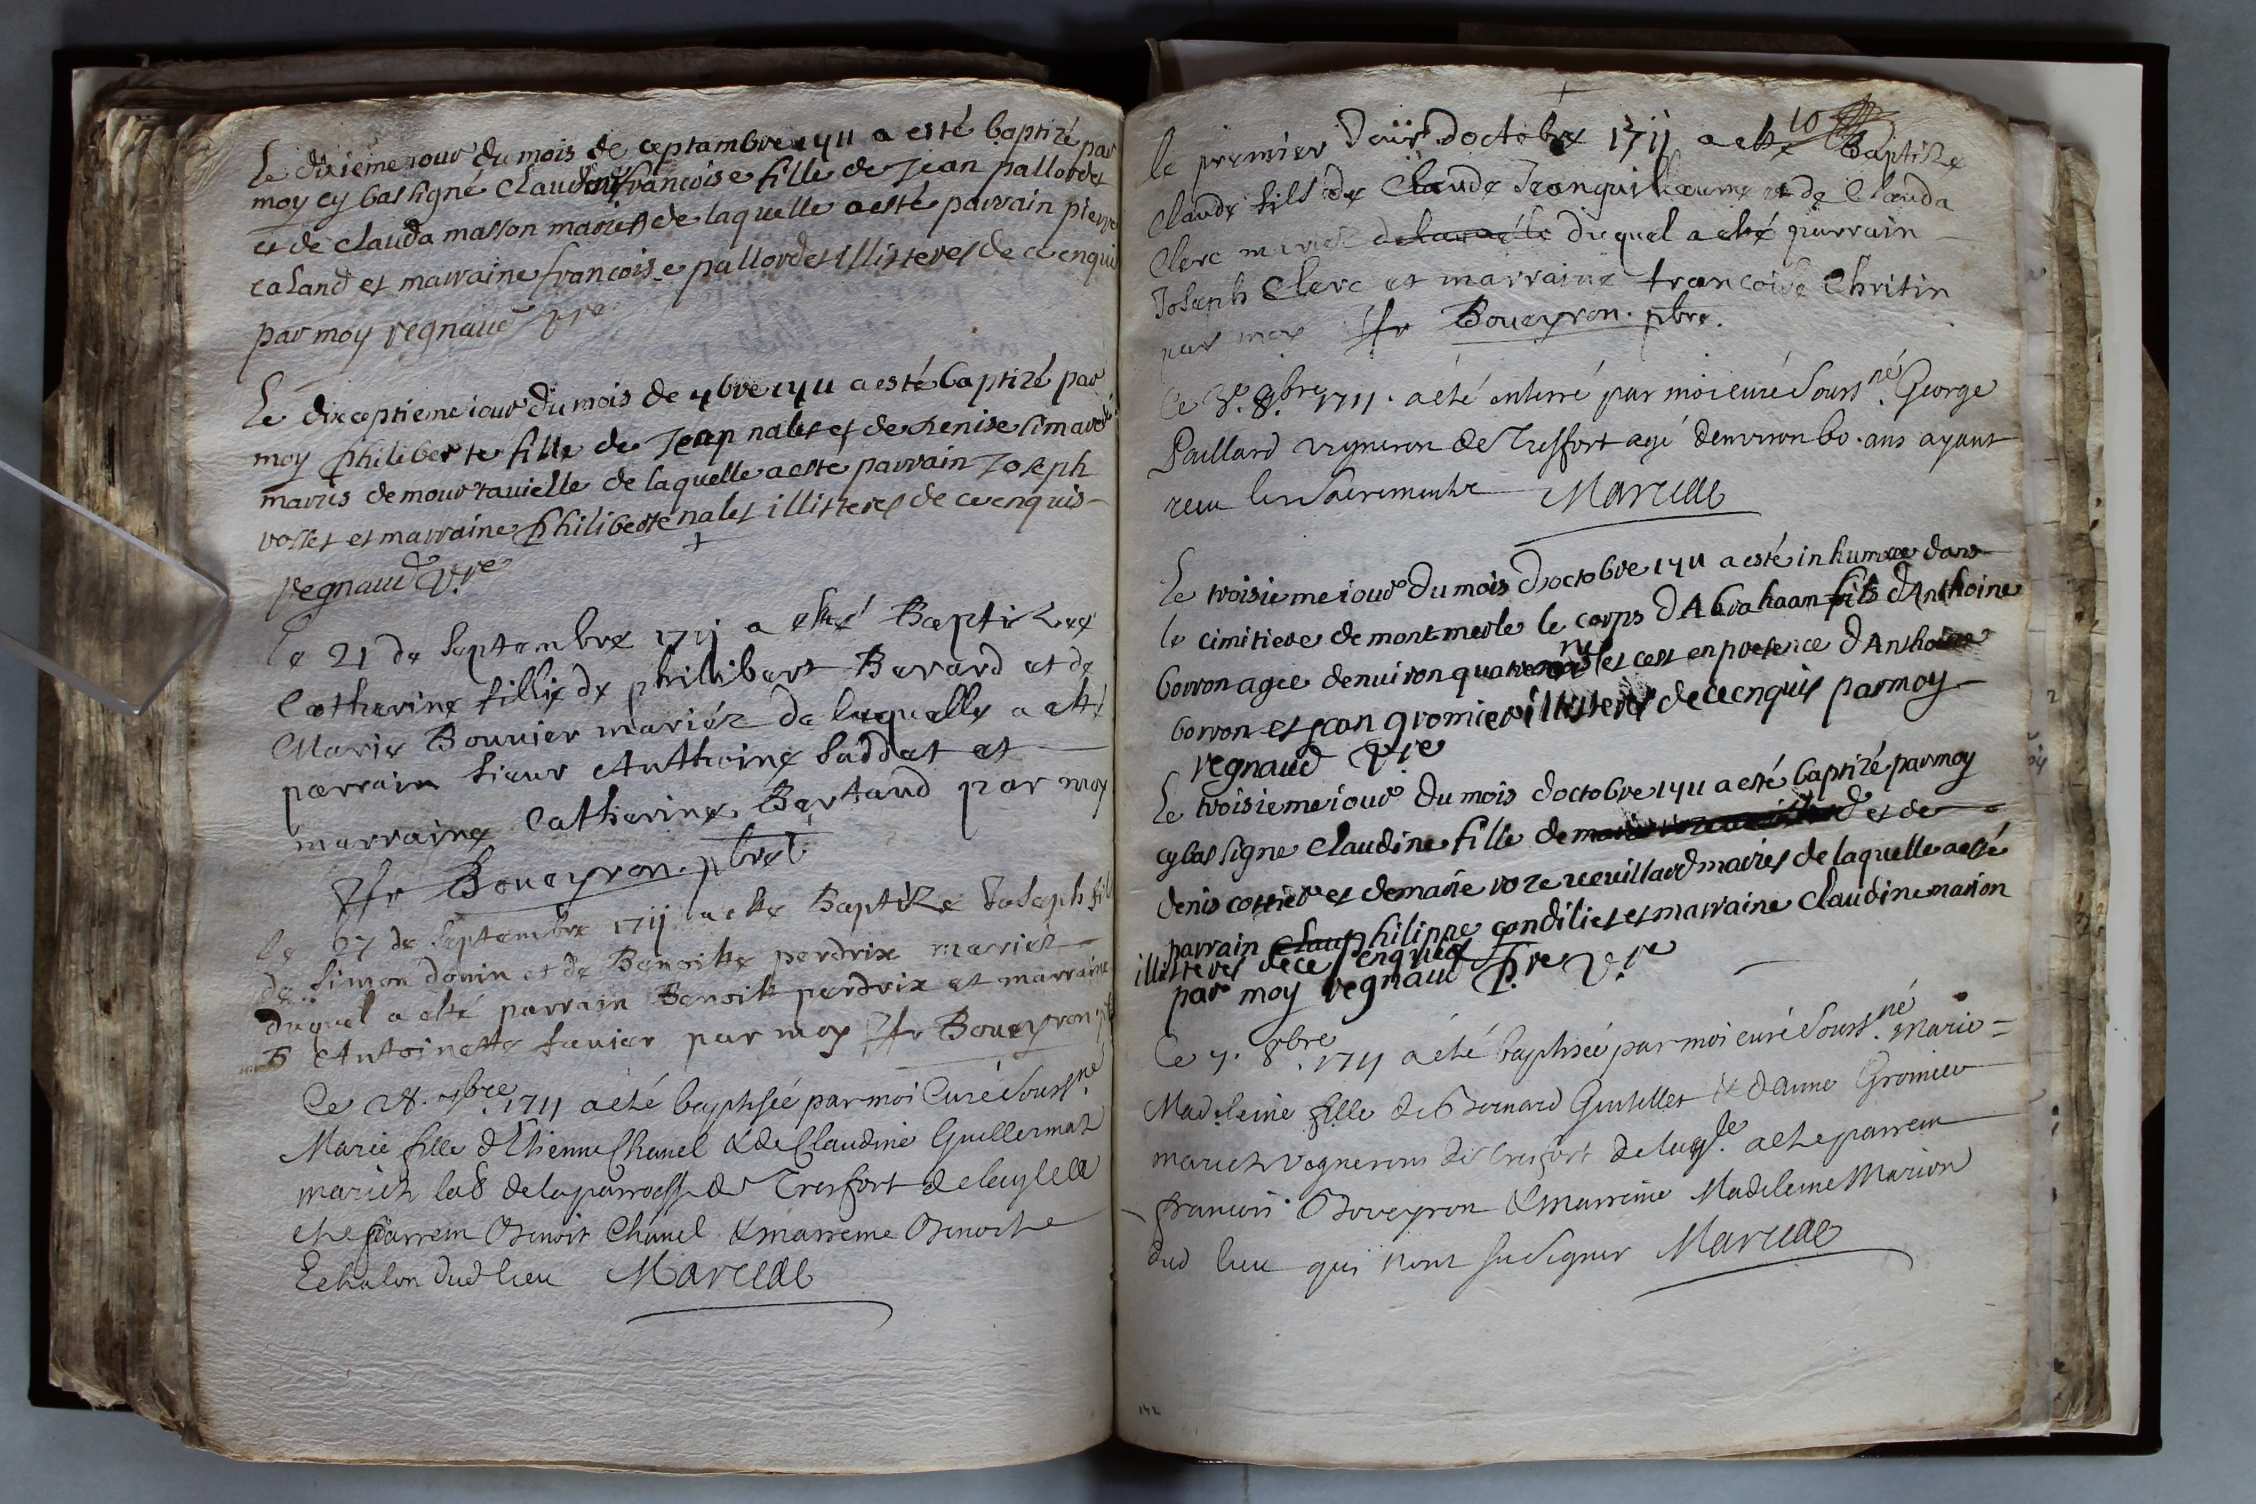 Le dixieme iour du mois de ceptambre 1711 a esté baptizé par
moy cy bas signé Claudine francoise fille de Jean pallordet
et de clauda masson mariés de laquelle a esté parrain pierre
caland et marraine francoise pallordet illisteres de ce enquis
par moy regnaud vre
Le dixceptieme iour du mois de 7bre 1711 a esté baptizé par
moy philiberte fille de Jean nalet et de denise
mariés de de laquelle a esté parrain Joseph
vollet et marraine philiberte nalet illisteres de ce enquis
regnaud vre
le 21 de septembre 1711 a esté Baptizee
Catherine fillie de philibert Berard et de
Marie Bouvier mariéz de laquelle a esté
parrain sieur Anthoine Saddet et
marraine Catherine Bertaud par moy
Boueyron pbre
le 27 de septembre 1711 a este Baptize Joseph fil
de simon donin et de Benoiste perdrix mariéz
duquel a esté parrain Benoit perdrix et marraine
Antoinette fauier par moy Boueyron
Ce 28. 7bre 1711 a été baptisée par moi Curé Sourssné
Marie fille d'Etienne Chanel & de Claudine Guillermat
mariez lab de la parroesse de Tresfort de laqlle a
ete parrein Benoit Chanel & marreine Benoite
Echalon dud lieu Marcial
10
le premier Jour d'octobre 1711 a este Baptize
Claude fils de Claude Jeanguillaume et de Clauda
Clerc mariéz de laquelle duquel a esté parrain
Joseph Clerc et marraine francoise Chritin
par moy Boueyron. pbre.
Ce 3e. 8bre 1711. a été enterré par moi curé Sourssné. George
Paillard vigneron de Tresfort agé d'environ 60. ans ayant
receu les Sacrements Marcial
Le troisieme iour du mois d'octobre 1711 a esté inhumee dans
le cimitiere de montmerle le corps d'Abrahaam fils d'Anthoine
borron agee denuiron quatre et cest en presence d'Anthoine
borron et jean gromier illisteres de ce enquis par moy
regnaud vre
Le troisieme iour du mois d'octobre 1711 a esté baptizé par moy
cy bas signe Claudine fille de et de
denis cottier et de marie mariés de laquelle a esté
parrain Clau philippe condiliet et marraine Claudine marion
illisteres de ce enquis
par moy regnaud pre vre
Ce 7. 8bre. 1711 a été baptisée par moi curé Sourssné. Marie =
Madeleine fille de Bernard Guillet & d'anne Gromier
mariez vignerons de Tresfort de laqle. a ete parrein
francois Boveyron & marreine Madeleine Marion
dud lieu qui n'ont su signer Marcial
142